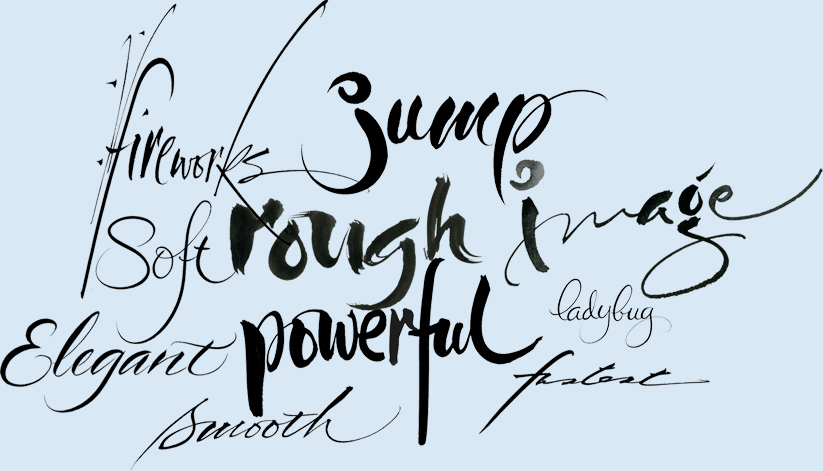 fireworks
jump
Soft
rough
image
Elegant
powerful
ladybug
fastest
smooth